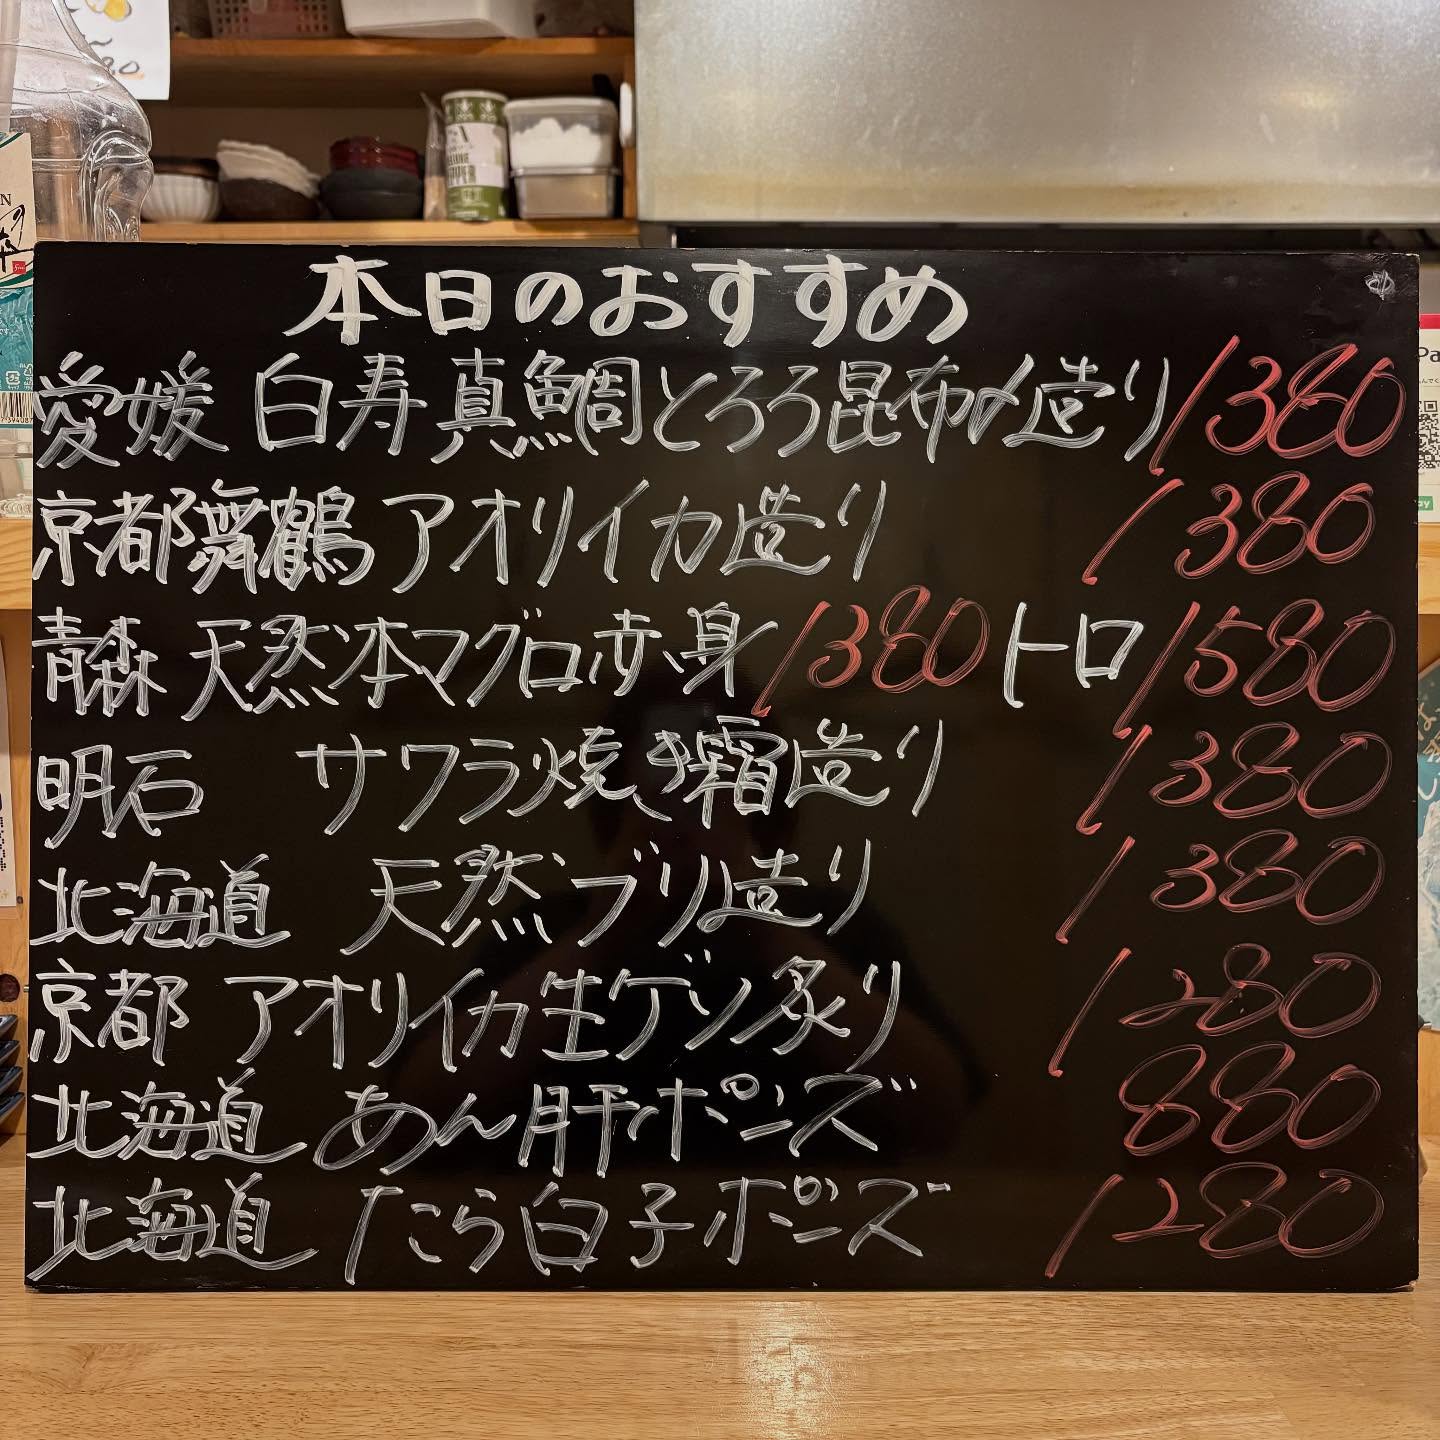 本日のおすすめ
愛媛 白寿真鯛とろろ昆布〆造り 1380
京都舞鶴 アオリイカ造り 1380
青森 天然本マグロ赤身 1380 トロ 1580
明石 サワラ焼き霜造り 1380
北海道 天然ブリ造り 1380
京都 アオリイカ生ゲソ炙り 1280
北海道 あん肝ポンズ 880
北海道 たら白子ポンズ 1280